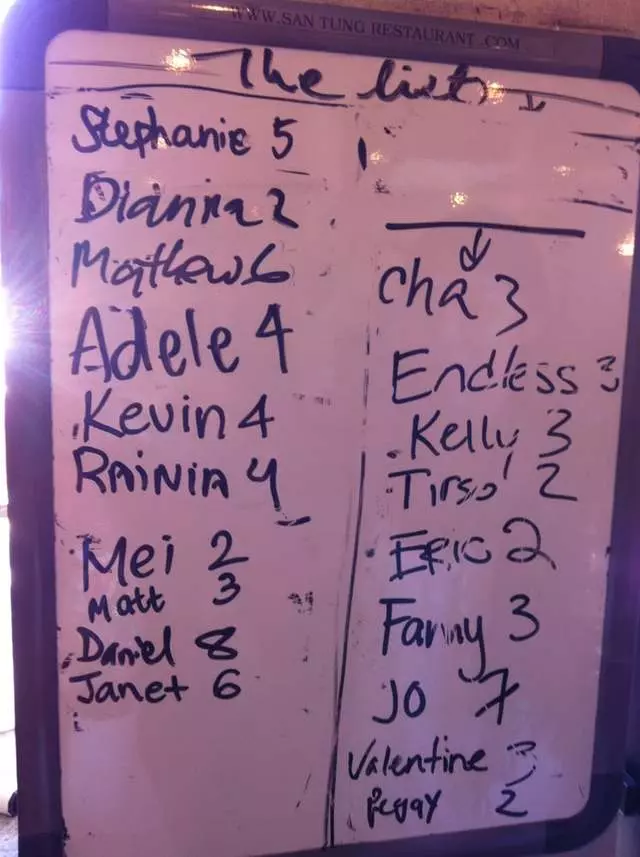 WWW.SAN TUNG RESTAURANT.COM
The list
Stephanie 5
Dianna 2
Mathew 6
Adele 4
Kevin 4
RAiNiA 4
Mei 2
Matt 3
Daniel 8
Janet 6
Cha 3
Endless 3
Kelly 3
Tirso 2
Eric 2
Fanny 3
JO 7
Valentine 3
Peggy 2